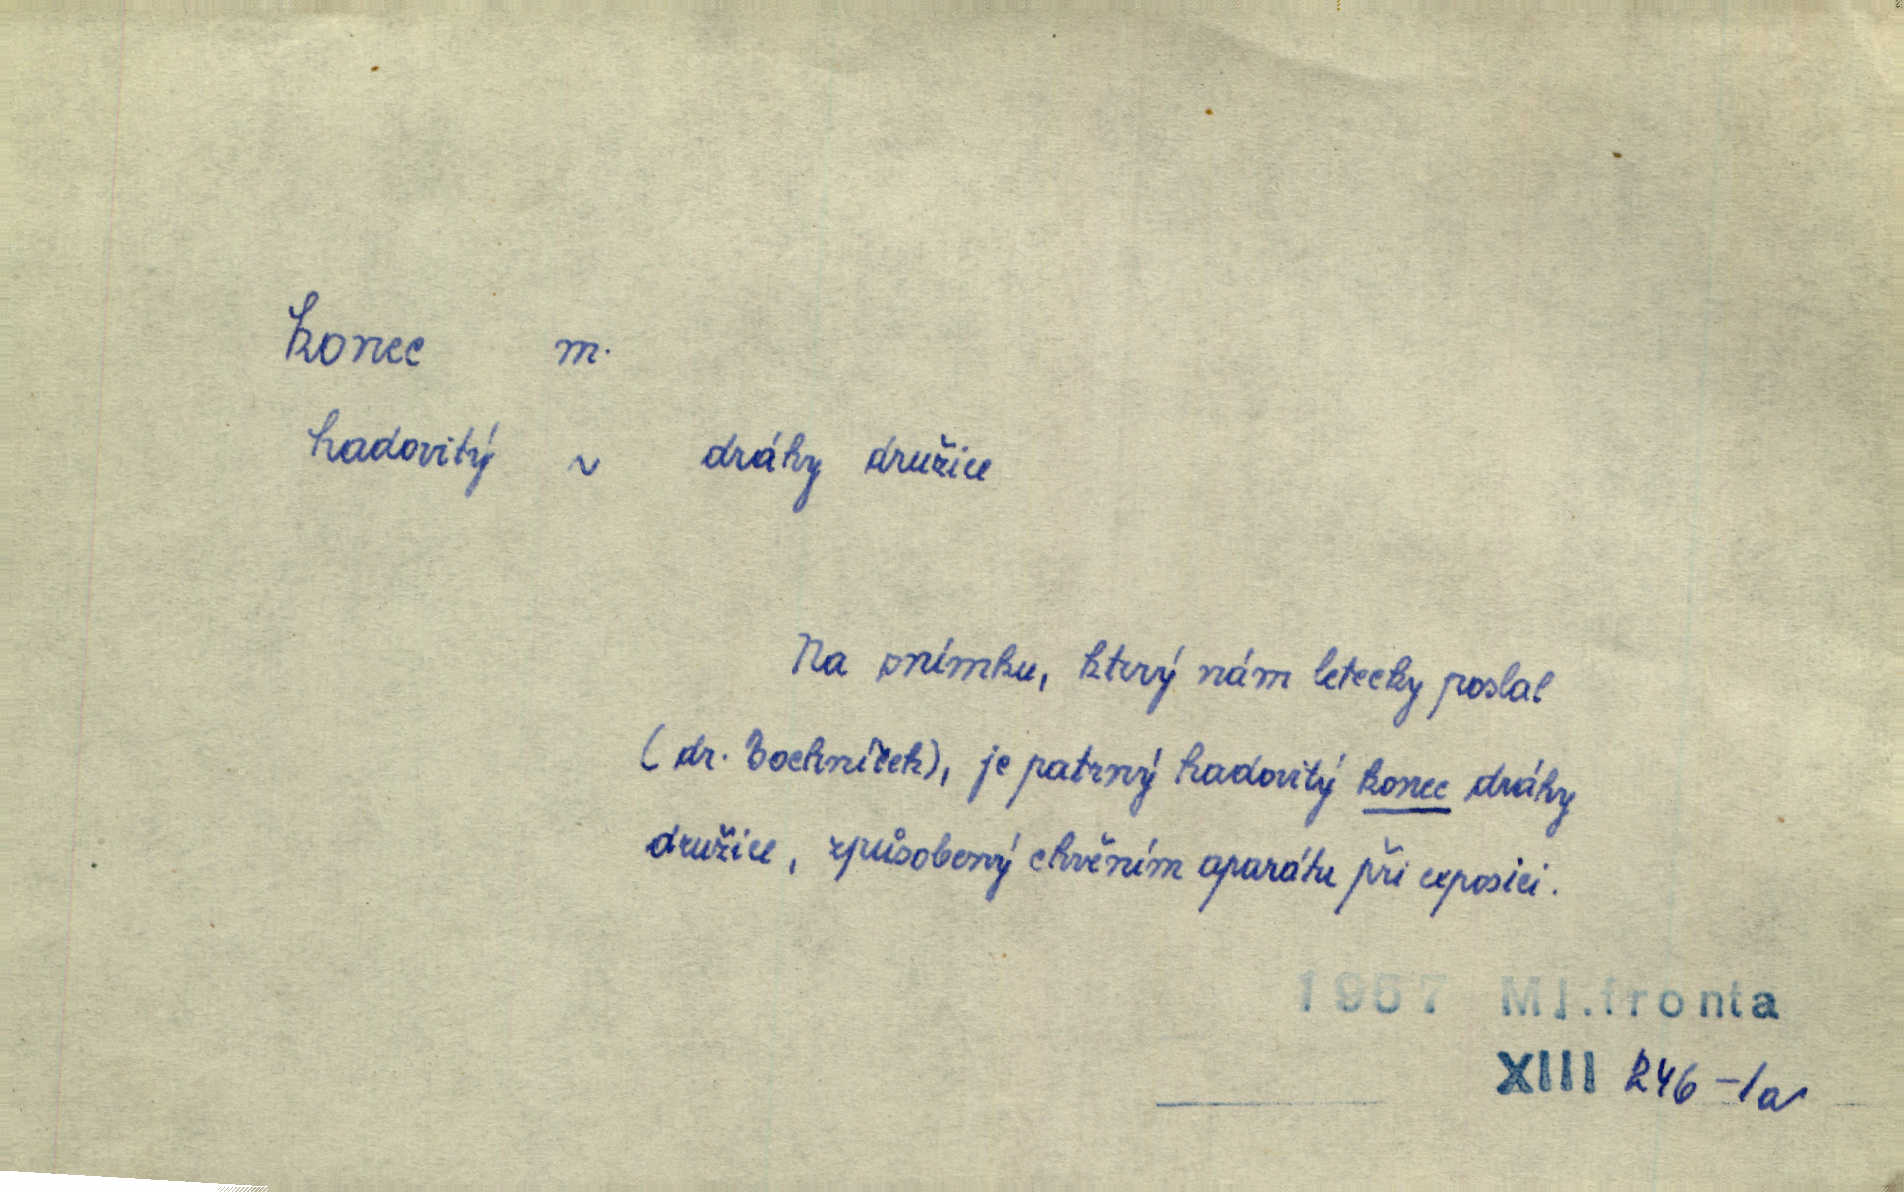 konec m.
hadovitý ~ dráhy družice
Na snímku, který nám letecky poslal
(dr. Bochníček), je patrný hadovitý konec dráhy
družice, způsobený chvěním aparátu při exposici.
1957 Ml.fronta
XIII 246-1a